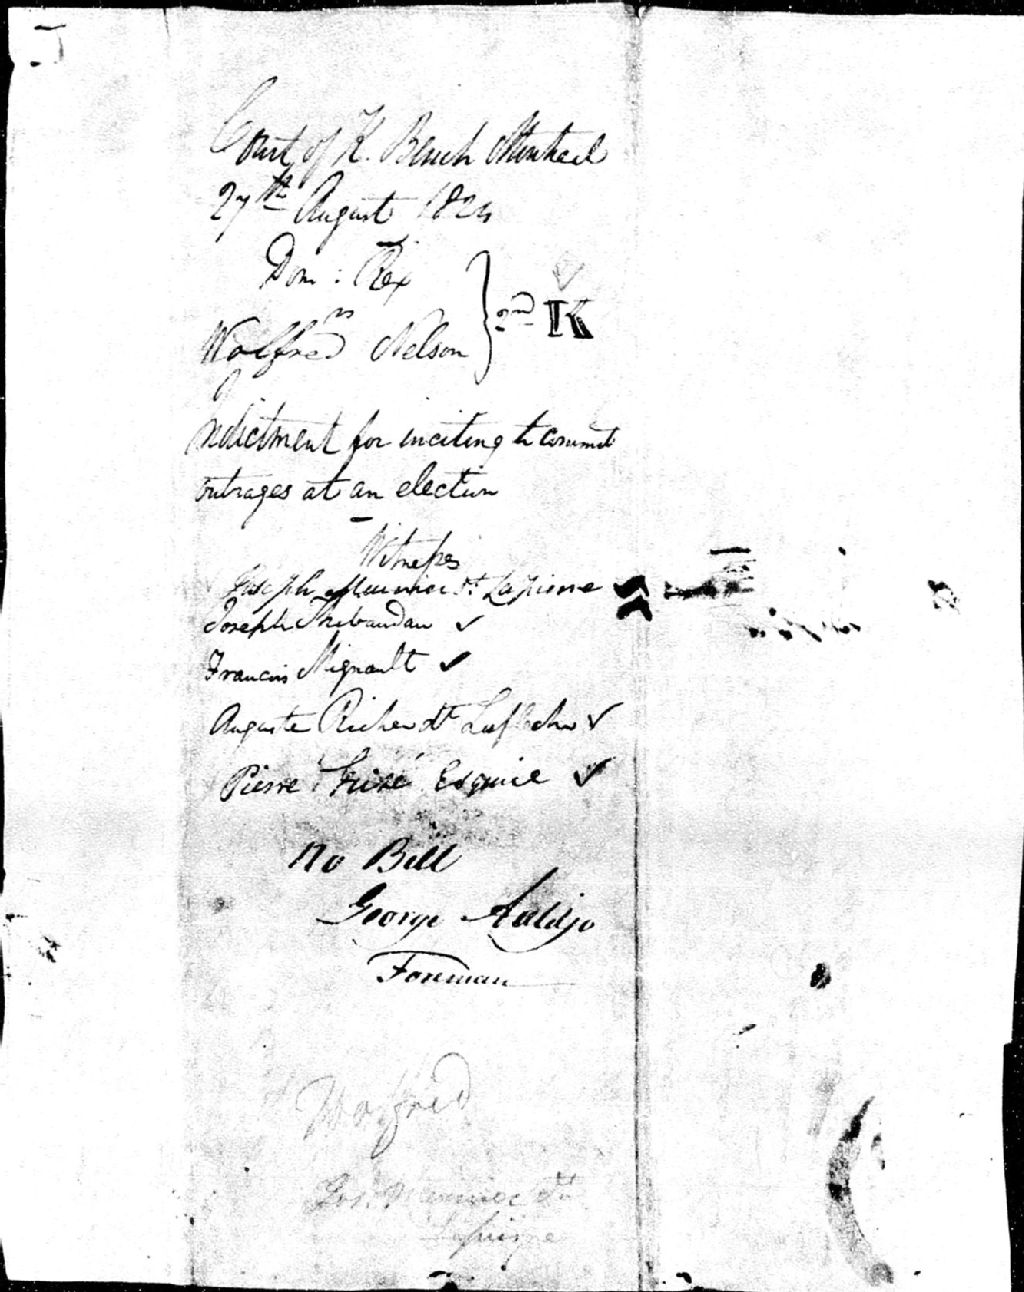 Court of K. Bench Montreal
27th August 1824
Dom: Rex
vs
Wolfred Nelson } 2nd K
Indictment for inciting to commit
outrages at an election
Witness
Joseph Meunier dt. Lapierre
Joseph Thibaudau ✓
Francois Mignault ✓
Auguste Richer dt Lafleche ✓
Pierre Guiré Esquire ✓
No Bill
George Auldjo
Foreman
Wolfred
Jos. Meunier dit
Lapierre